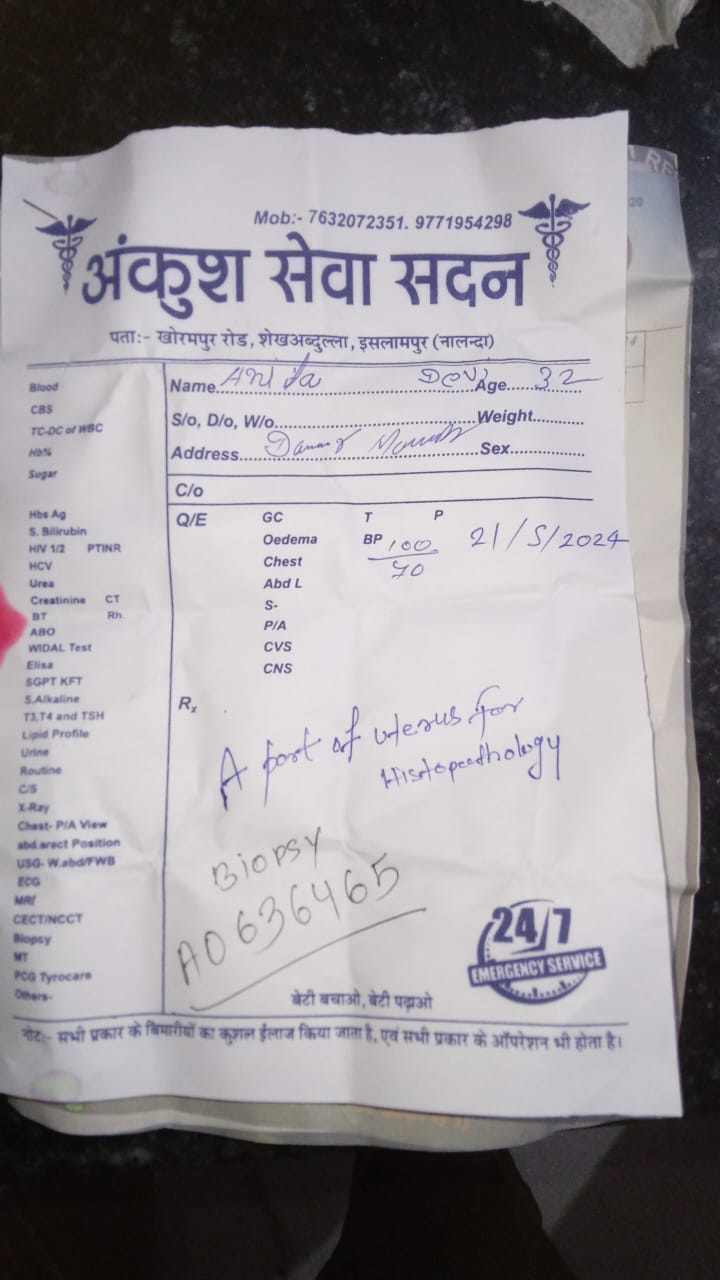 Mob:- 7632072351. 9771954298
अंकुश सेवा सदन
पता:- खोरमपुर रोड, शेखअब्दुल्ला, इसलामपुर (नालन्दा)
Blood
CBS
TC-DC of WBC
Hb%
Sugar
Hbs Ag
S. Bilirubin
HIV 1/2 PTINR
HCV
Urea
Creatinine CT
BT Rh.
ABO
WIDAL Test
Elisa
SGPT KFT
S.Alkaline
T3,T4 and TSH
Lipid Profile
Urine
Routine
C/S
X-Ray
Chest- P/A View
abd.erect Position
USG- W.abd/FWB
ECG
MRI
CECT/NCCT
Biopsy
MT
PCG Tyrocare
Others-
Name Anita Devi Age 32
S/o, D/o, W/o Weight
Address Sex
C/o
Q/E GC T P
Oedema BP 100/70 21/5/2024
Chest
Abd L
S-
P/A
CVS
CNS
Rx
A part of uterus for
Histopeathology
Biopsy
A0636465
24/7
EMERGENCY SERVICE
बेटी बचाओ, बेटी पढ़ाओ
नोट:- सभी प्रकार के बिमारीयों का कुशल ईलाज किया जाता है, एवं सभी प्रकार के ऑपरेशन भी होता है।